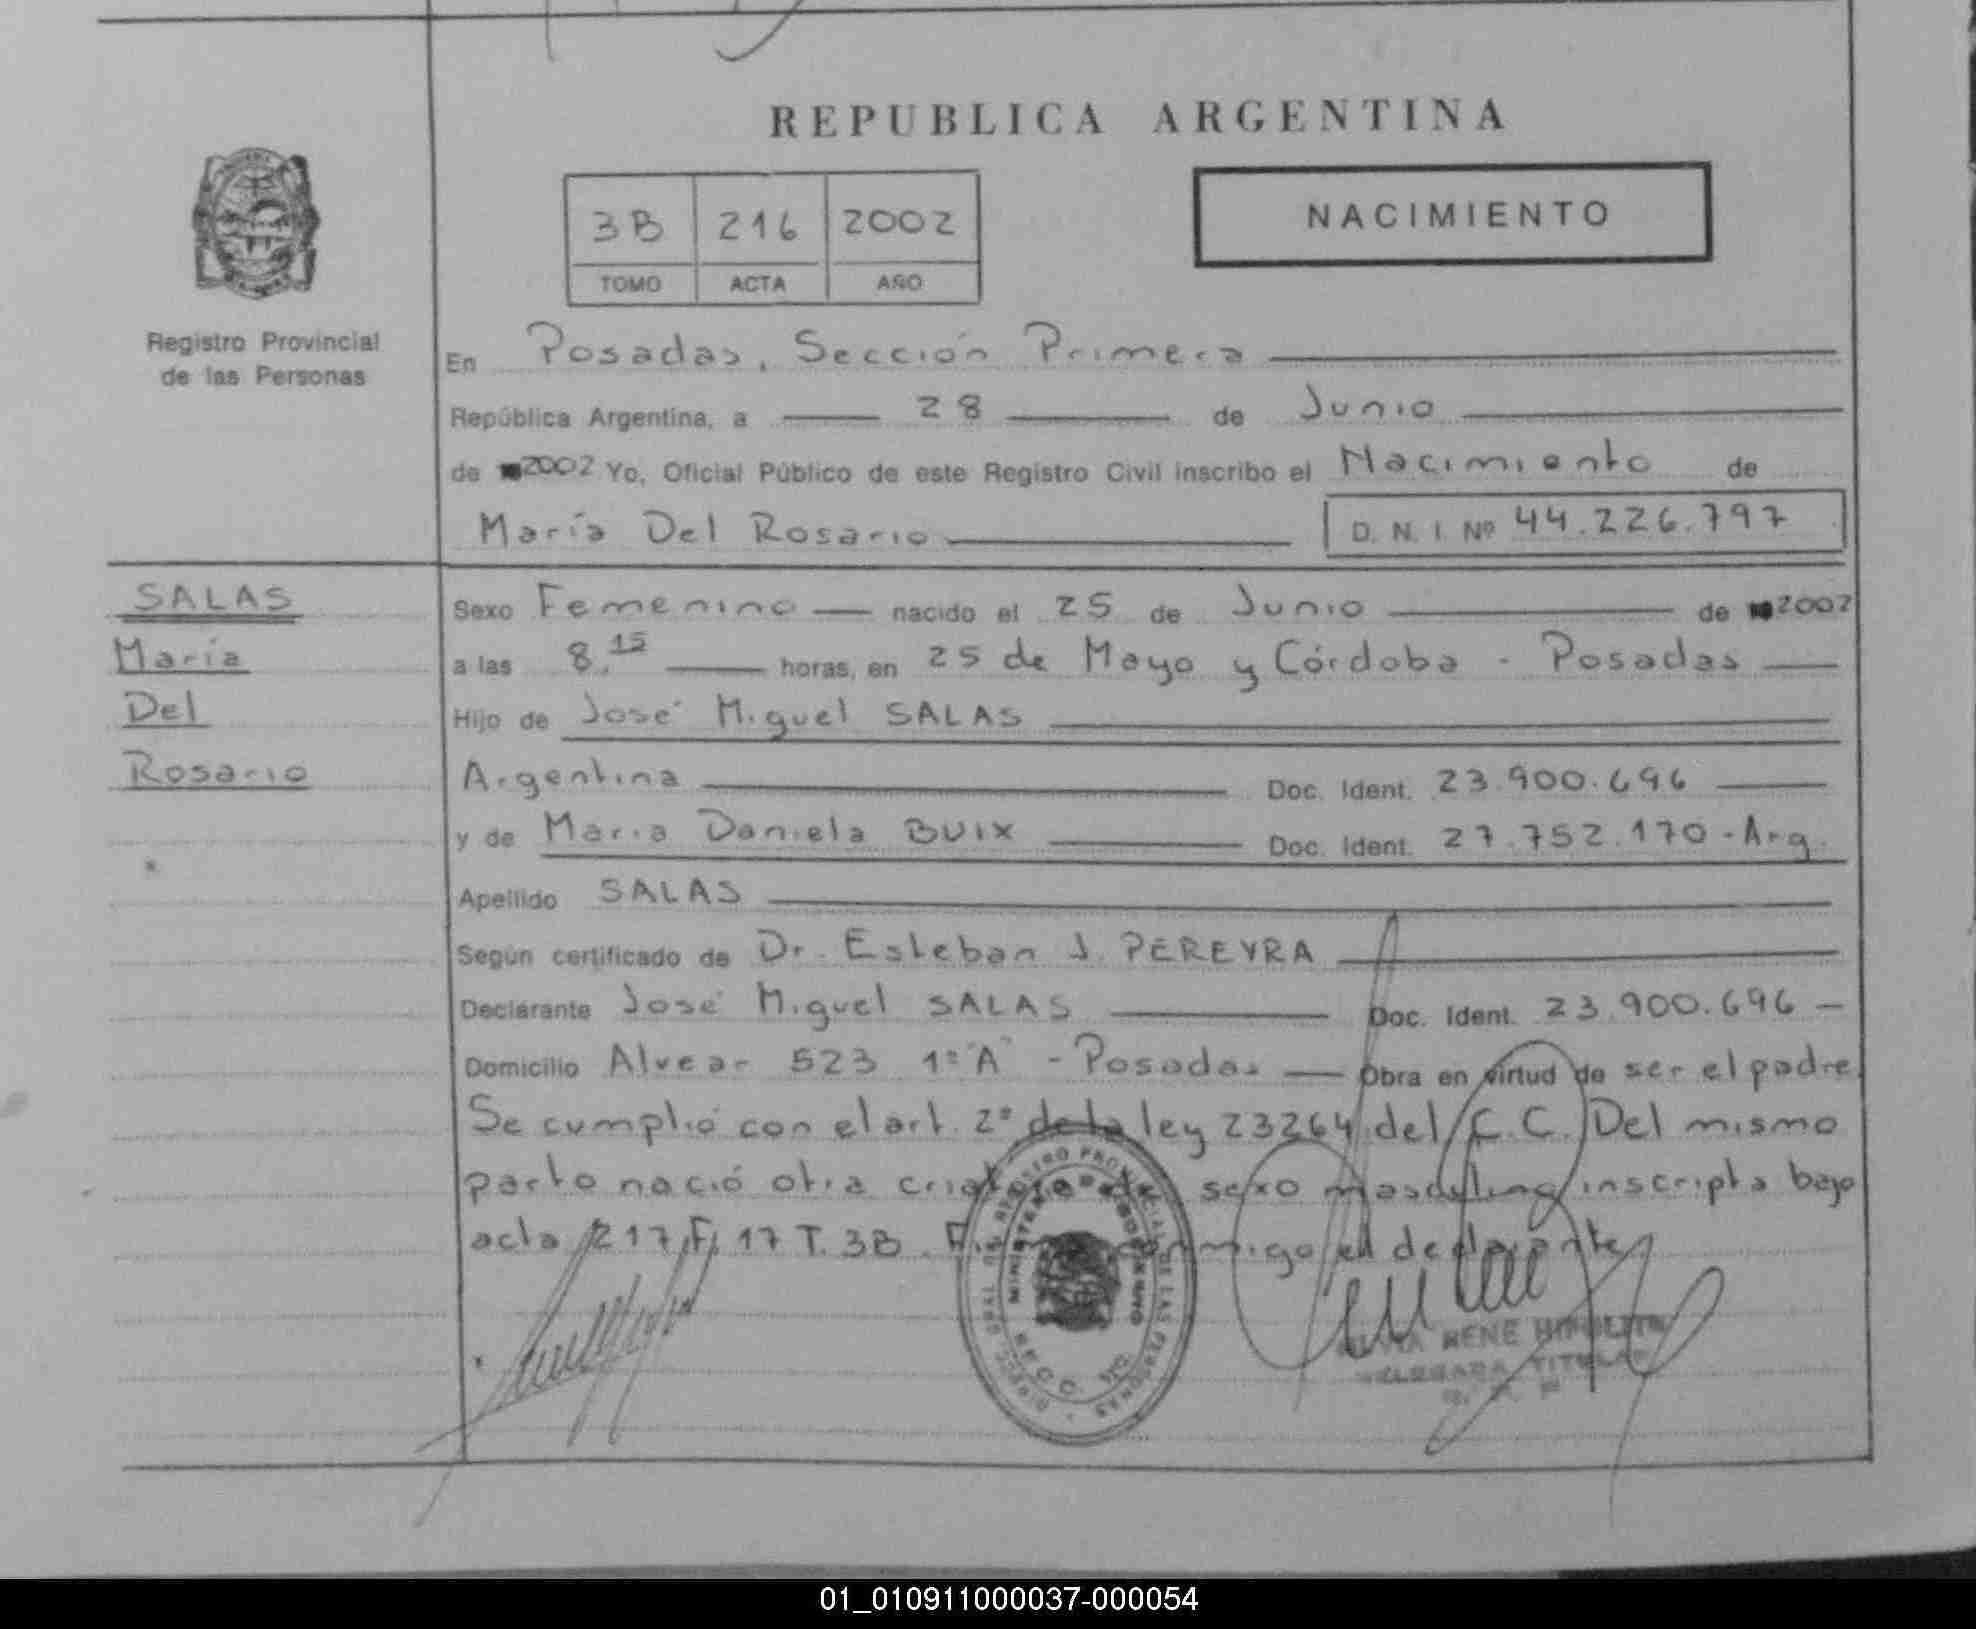 REPUBLICA ARGENTINA
3B 216 2002
TOMO ACTA AÑO
NACIMIENTO
Registro Provincial
de las Personas
En Posadas, Sección Primera
República Argentina, a 28 de Junio
de 2002 Yo, Oficial Público de este Registro Civil inscribo el Nacimiento de
María Del Rosario D. N. I. Nº 44.226.797
SALAS
María
Del
Rosario
Sexo Femenino nacido el 25 de Junio de 2002
a las 8.15 horas, en 25 de Mayo y Córdoba - Posadas
Hijo de José Miguel SALAS
Argentina Doc. Ident. 23.900.696
y de Maria Daniela BUIX Doc. Ident. 27.752.170 - Arg.
Apellido SALAS
Según certificado de Dr. Esteban J. PEREYRA
Declarante José Miguel SALAS Doc. Ident. 23.900.696 -
Domicilio Alvear 523 1º "A" - Posadas Obra en virtud de ser el padre.
Se cumplió con el art. 2º de la ley 23264 del C.C. Del mismo
parto nació otra sexo masculino inscripta bajo
acta 217 F. 17 T. 3B. el declarante.
REGISTRO PROVINCIAL DE LAS PERSONAS
MINISTERIO DE GOBIERNO
RENE HIPOLITO
DELEGADA TITULAR
01_010911000037-000054